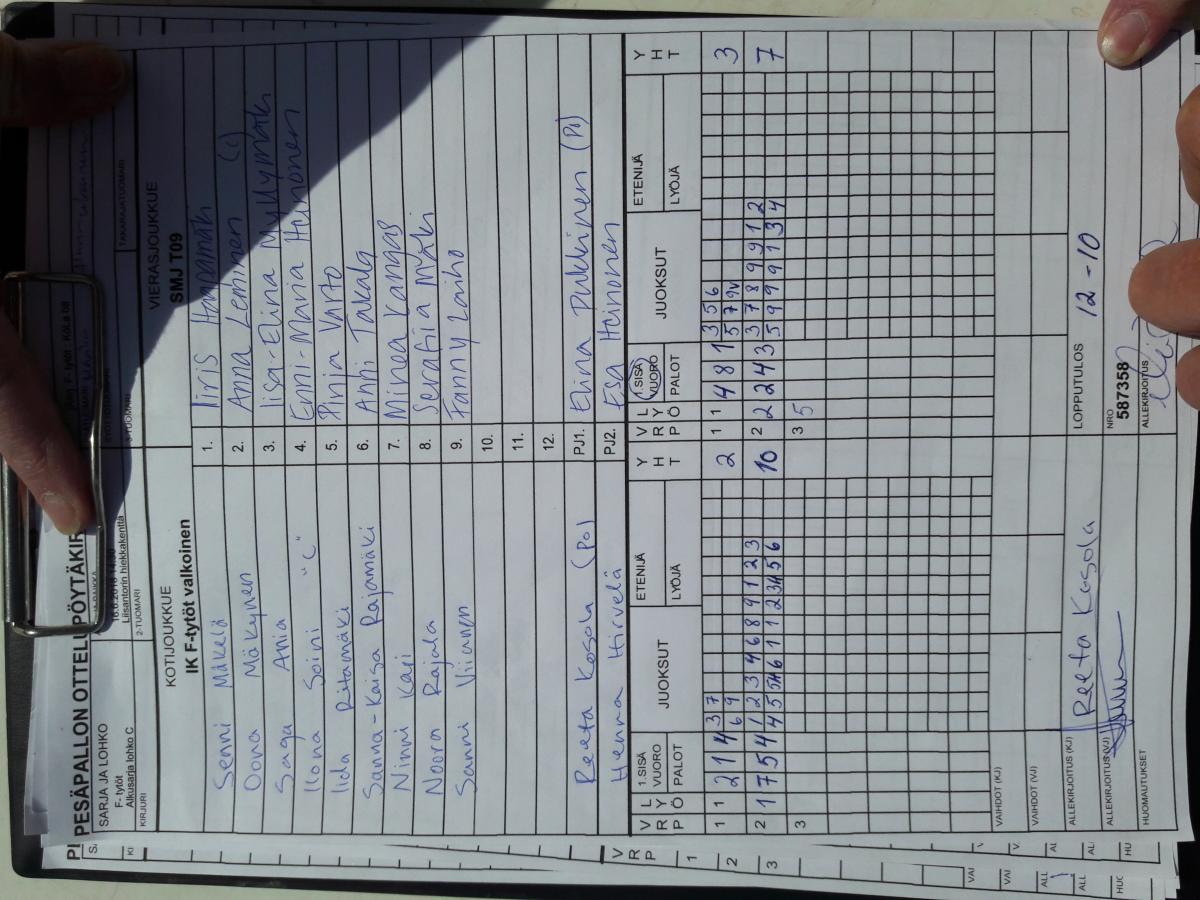 PESÄPALLON OTTELUPÖYTÄKIR
SARJA JA LOHKO
F- tytöt
Alkusarja lohko C
Liisantorin hiekkakenttä
KIRJURI
2-TUOMARI
3-TUOMARI
TAKARAJATUOMARI
KOTIJOUKKUE
IK F-tytöt valkoinen
VIERASJOUKKUE
SMJ T09
Senni Mäkelä 1. Iiris Hannamäki
Oona Mäkynen 2. Anna Lehtinen (c)
Saga Ania 3. Iisa-Elina Myllymäki
Ilona Soini "C" 4. Enni-Maria Heinonen
Iida Ritamäki 5. Pinja Virto
Sanna-Kaisa Rajamäki 6. Anni Takala
Ninni Kari 7. Minea Kangas
Noora Rajala 8. Serafiia Mäki
Sanni Viianen 9. Fanny Laiho
10.
11.
12.
Reeta Kosola (PO) PJ1. Elina Pulkkinen (PJ)
Henna Hirvelä PJ2. Esa Heinonen
V R P L Y Ö 1.SISÄ VUORO PALOT JUOKSUT ETENIJÄ LYÖJÄ Y H T V R P L Y Ö 1.SISÄ VUORO PALOT JUOKSUT ETENIJÄ LYÖJÄ Y H T
1 1 2 1 4 3 7 2 1 1 4 8 1 3 5 6 3
6 9 5 7 9V
2 1 7 5 4 1 2 3 4 6 8 9 1 2 3 10 2 2 2 4 3 3 7 8 9 9 1 2 7
4 5 5H 6 1 1 2 3H 5 6 5 9 9 9 1 3 4
3 3 5
VAIHDOT (KJ)
VAIHDOT (VJ)
ALLEKIRJOITUS (KJ) Reeta Kosola LOPPUTULOS 12-10
ALLEKIRJOITUS (VJ) NRO
5873587
HUOMAUTUKSET ALLEKIRJOITUS